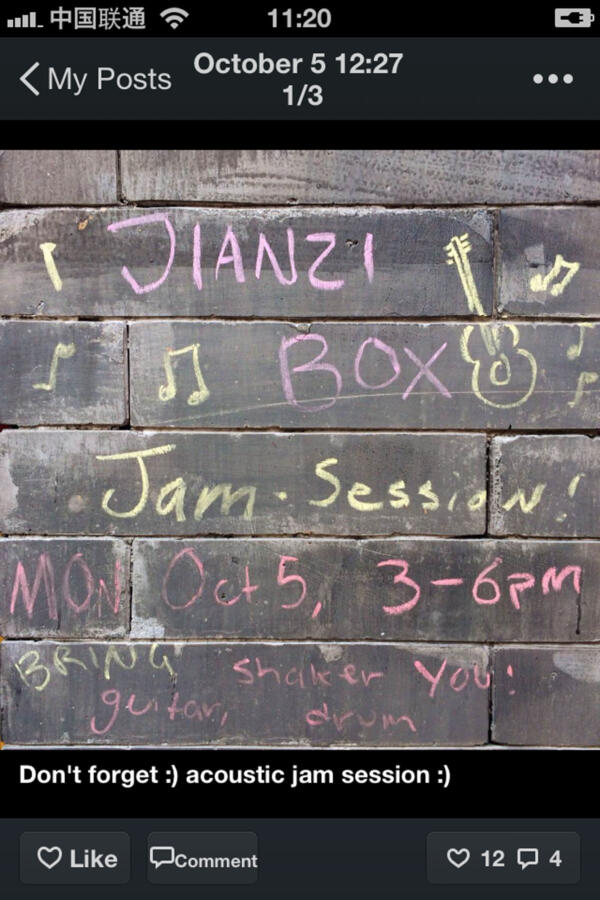 中国联通 11:20
My Posts
October 5 12:27
1/3
JIANZI
BOX
Jam-Session!
MON Oct 5, 3-6pm
BRING shaker You!
guitar, drum
Don't forget :) acoustic jam session :)
Like Comment 12 4